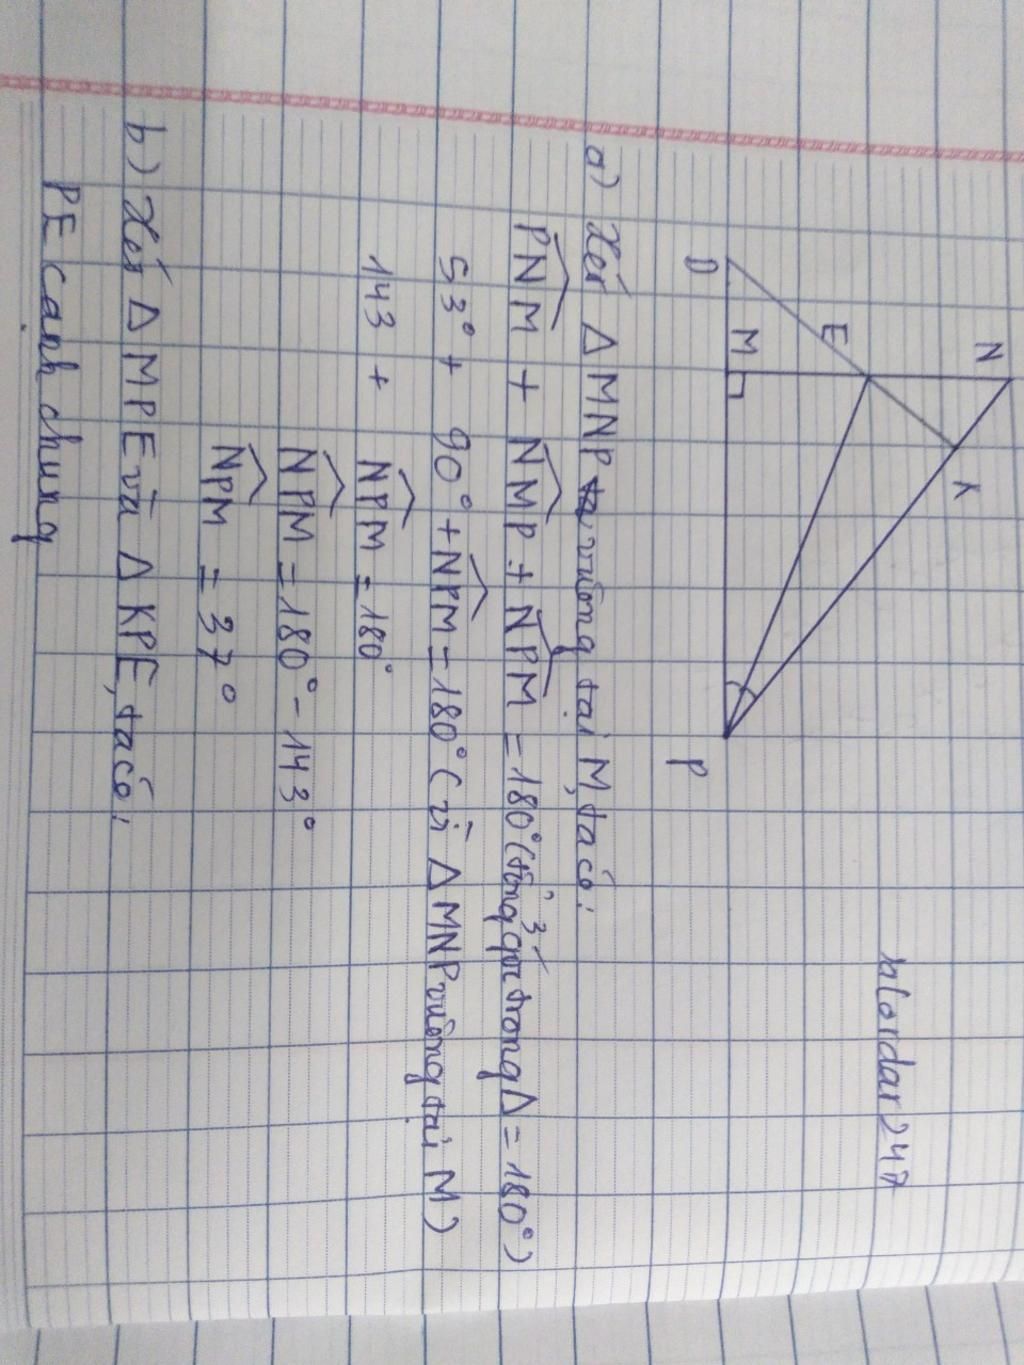 N
K
E
M
D
P
a) Xét Δ MNP vuông tại M, ta có:
PNM + NMP + NPM = 180° (tổng 3 góc trong Δ = 180°)
53° + 90° + NPM = 180° (vì Δ MNP vuông tại M)
143 + NPM = 180°
NPM = 180° - 143°
NPM = 37°
b) Xét Δ MPE và Δ KPE, ta có:
PE cạnh chung